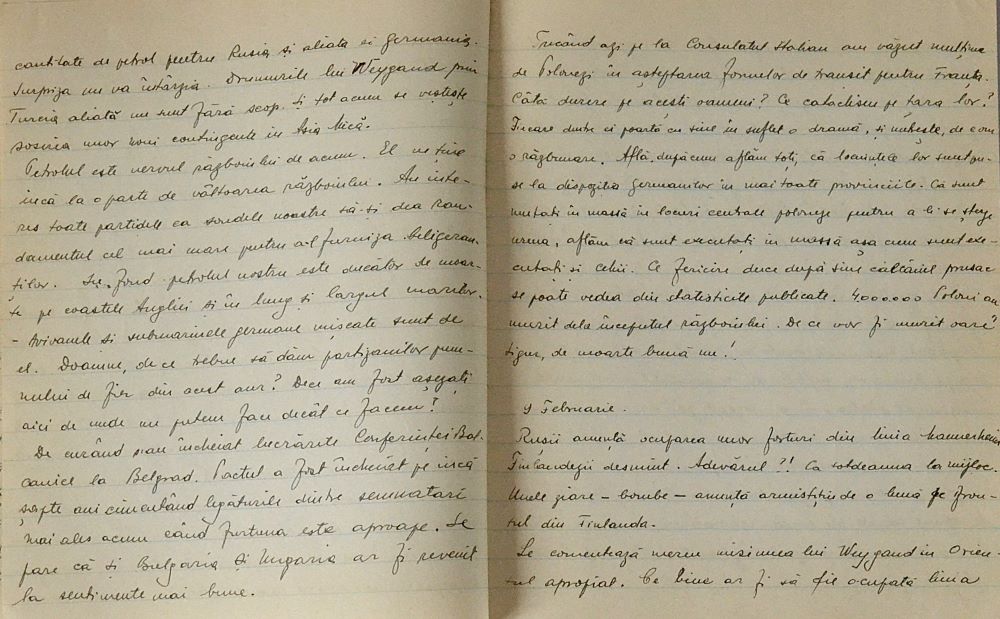 cantitate de petrol pentru Rusia și aliata ei Germania.
Surpriza nu va întârzia. Drumurile lui Weygand prin
Turcia aliată nu sunt fără scop. Și tot acum se vestește
sosirea unor noui contingente în Asia Mică.
Petrolul este nervul războiului de acum. El ne ține
încă la o parte de vâltoarea războiului. Au inte-
res toate partidele ca sondele noastre să-și dea ran-
damentul cel mai mare pentru a-l furniza beligeran-
ților. În fond petrolul nostru este ducător de moar-
te pe coastele Angliei și în lung și largul mărilor.
- Avioanele și submarinele germane mișcate sunt de
el. Doamne, de ce trebue să dăm partizanilor pum-
nului de fier din acest aur? Dece am fost așezați
aici de unde nu putem face decât ce facem?
De curând s-au încheiat lucrările Conferinței Bal-
canice la Belgrad. Pactul a fost încheiat pe încă
șapte ani cimentând legăturile dintre semnatari
mai ales acum când furtuna este aproape. Se
pare că și Bulgaria și Ungaria ar fi revenit
la sentimente mai bune.
Trecând azi pe la Consulatul Italian am văzut mulțime
de Polonezi în așteptarea formelor de transit pentru Franța.
Câtă durere pe acești oameni? Ce cataclism pe țara lor?
Fiecare dintre ei poartă cu sine în suflet o dramă, și nutrește, de e om
o răzbunare. Află, după cum aflăm toți, că locuințele lor sunt pu-
se la dispoziția Germanilor în mai toate provinciile. Că sunt
mutați în massă în locuri centrale poloneze pentru a li se șterge
urma, aflăm că sunt executați în massă așa cum sunt exe-
cutați și Cehii. Ce fericire duce după sine călcâiul prusac
se poate vedea din statisticile publicate. 4000000 Poloni au
murit dela începutul războiului. De ce vor fi murit oare
sigur, de moarte bună nu!
9 Februarie.
Rușii anunță ocuparea unor forturi din linia Mannerheim
Finlandezii desmint. Adevărul?! Ca totdeauna la mijloc.
Unele ziare – bombe – anunță armistițiu de o lună pe fron-
tul din Finlanda.
Se comentează mereu misiunea lui Weygand în Orien-
tul apropiat. Ce bine ar fi să fie ocupată linia